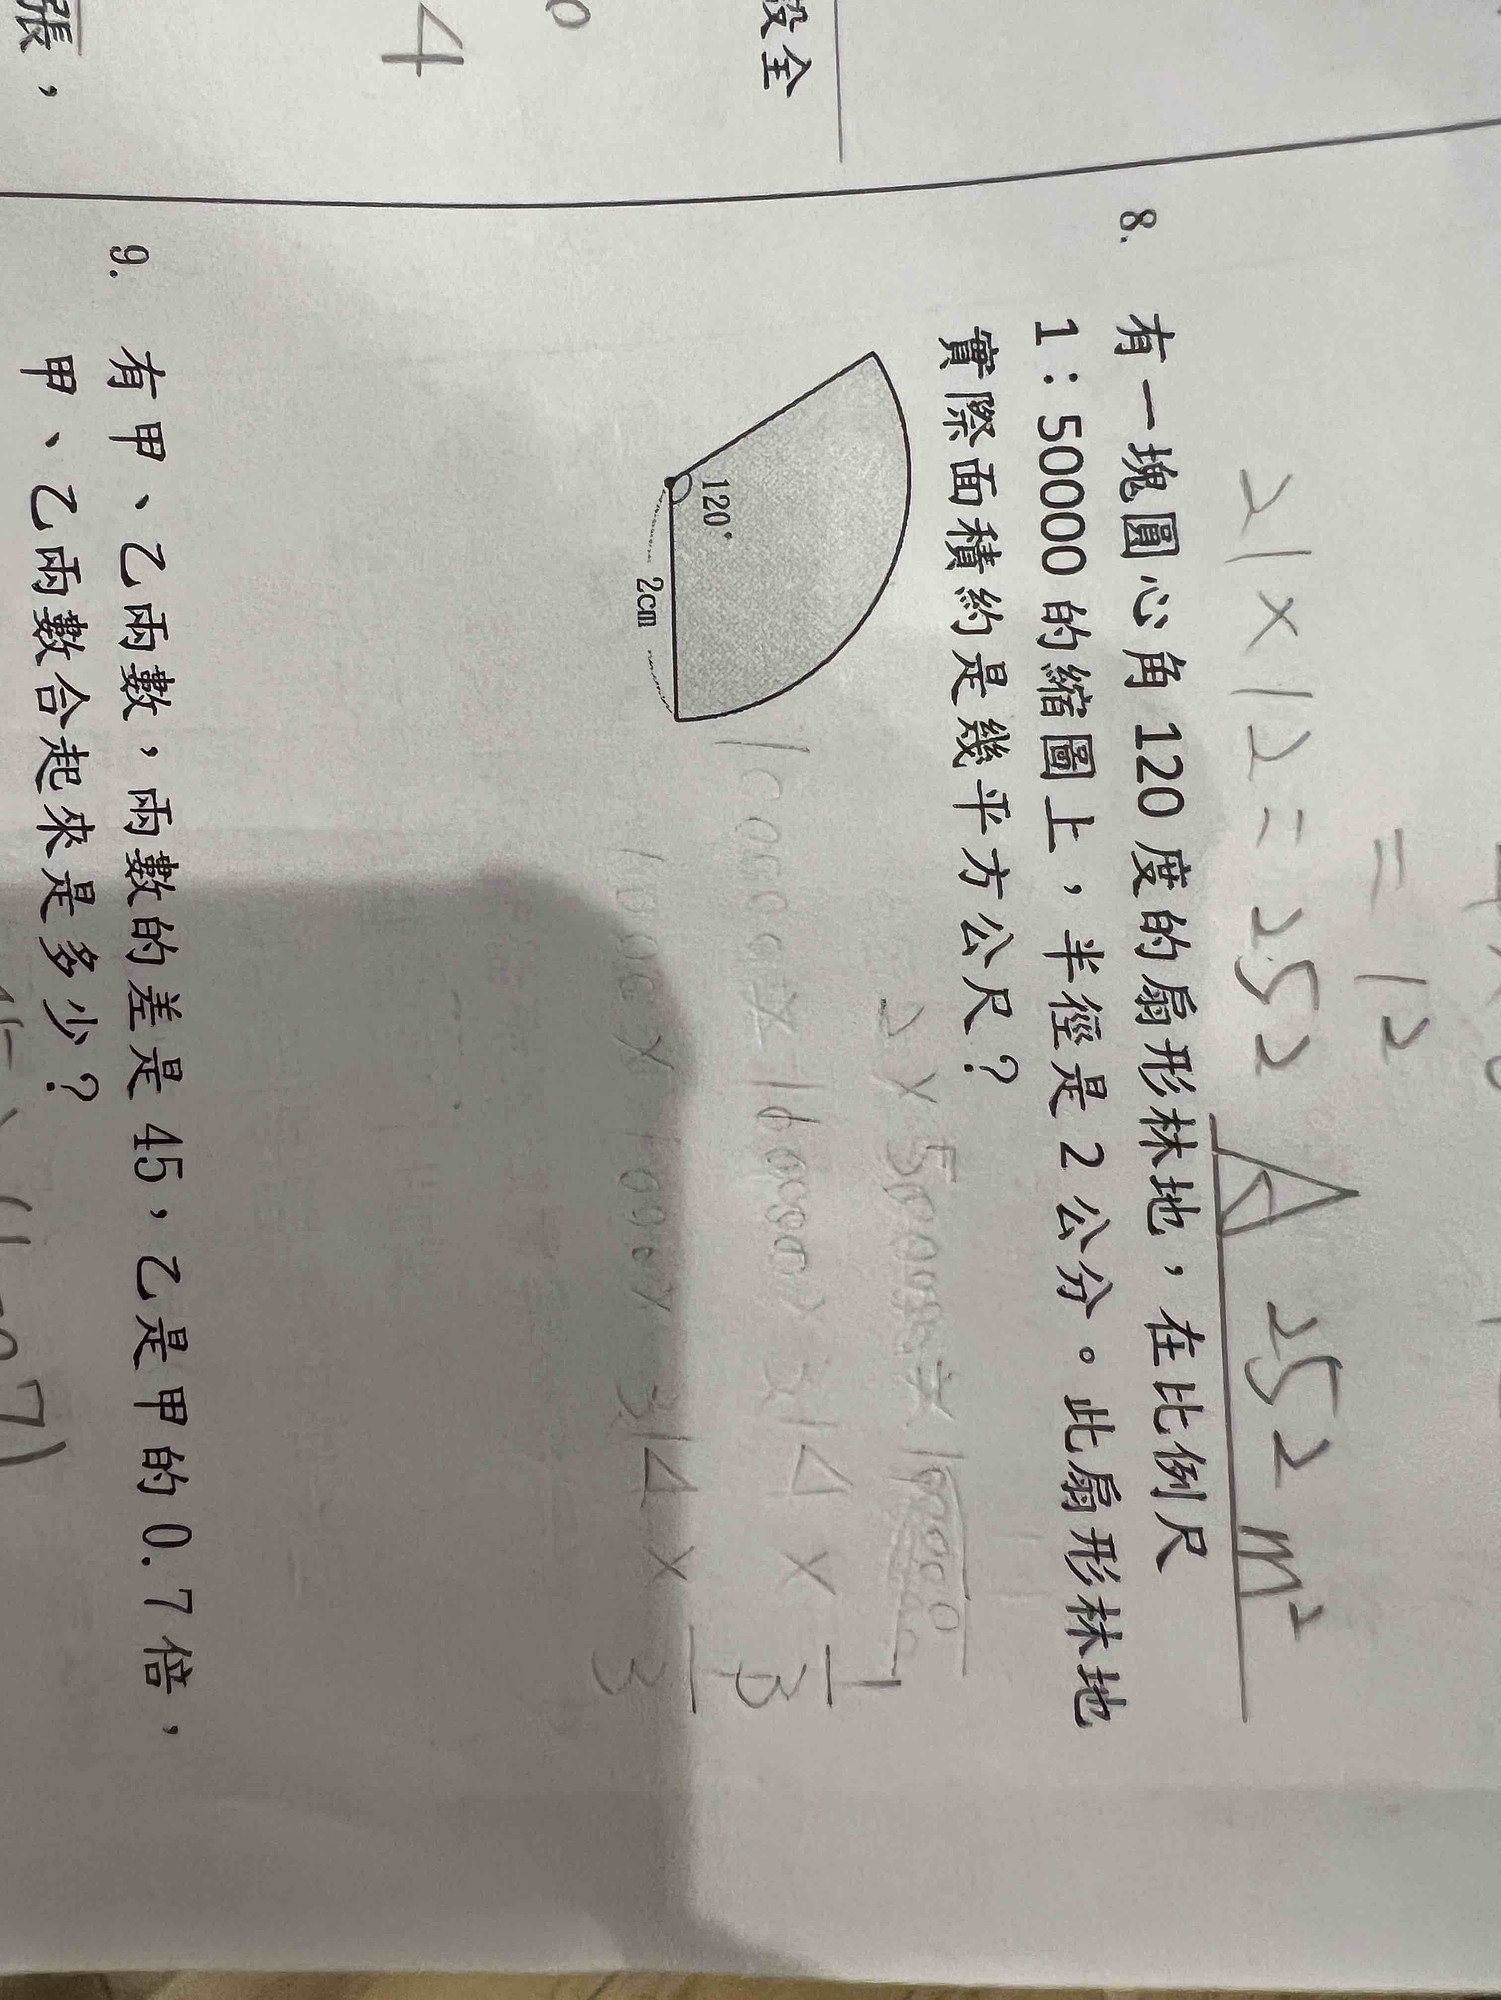 張，
4
0
設全
= 12
21×12=252
A 252 m²
8. 有一塊圓心角 120 度的扇形林地，在比例尺
1：50000 的縮圖上，半徑是 2 公分。此扇形林地
實際面積約是幾平方公尺？
120°
2cm
2×50000=100000
× 3.14 × 1/3
× 3.14 × 1/3
9. 有甲、乙兩數，兩數的差是 45，乙是甲的 0.7 倍，
甲、乙兩數合起來是多少？